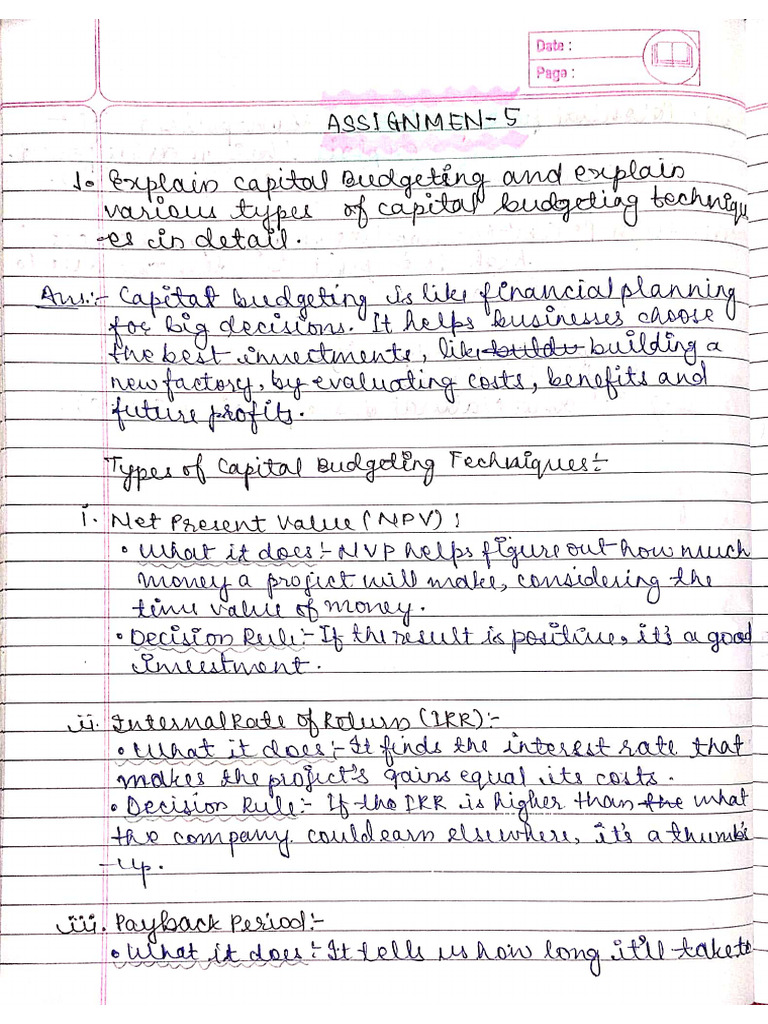 Date :
Page :
ASSIGNMEN-5
1. Explain capital Budgeting and explain
various types of capital budgeting techniqu
-es in detail.
Ans:- Capital budgeting is like financial planning
for big decisions. It helps businesses choose
the best investments, like buildu building a
new factory, by evaluating costs, benefits and
future profits.
Types of Capital Budgeting Techniques:-
i. Net Present Value (NPV) :
• What it does:- NVP helps figure out how much
money a project will make, considering the
time value of money.
• Decision Rule:- If the result is positive, it's a good
investment.
ii. Internal Rate of Return (IRR):-
• What it does:- It finds the interest rate that
makes the project's gains equal its costs.
• Decision Rule:- If the IRR is higher than the what
the company could earn elsewhere, it's a thumbs
-up.
iii. Payback Period:-
• What it does:- It tells us how long it'll take to